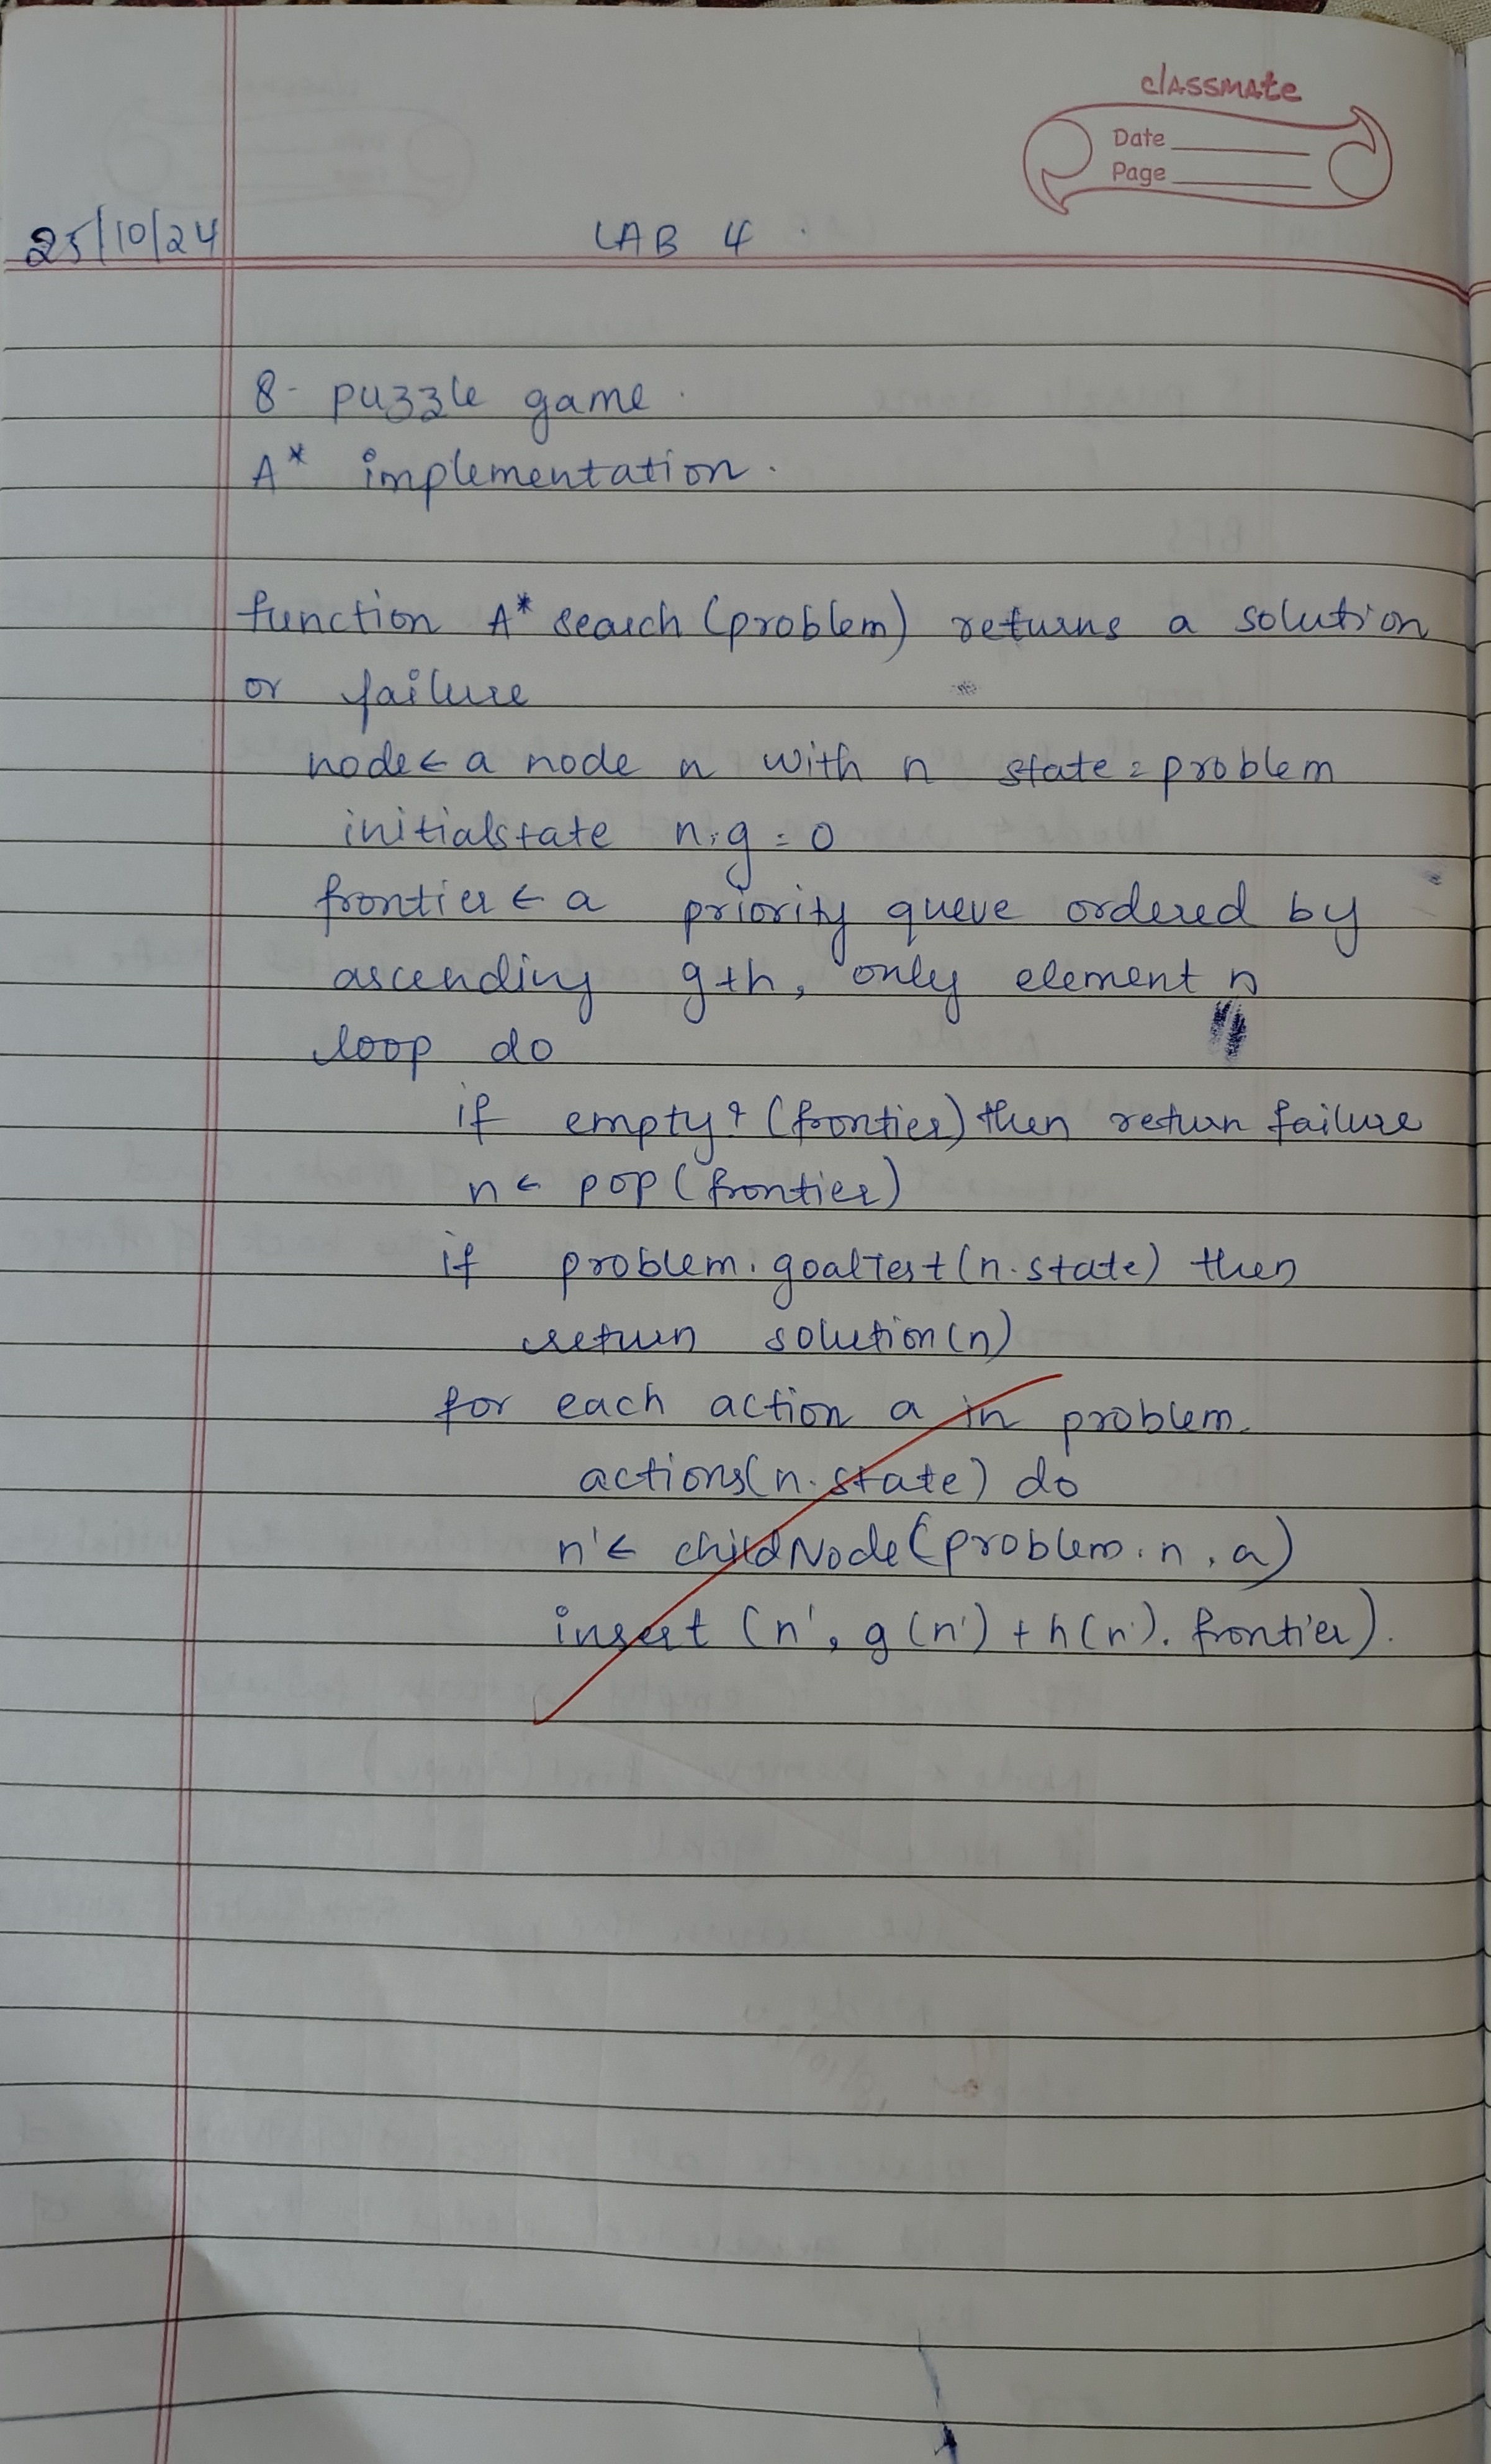 classmate
Date
Page
25/10/24 LAB 4
8- puzzle game.
A* implementation.
function A* search (problem) returns a solution
or failure
node ← a node n with n state = problem
initialstate n.g = 0
frontier ← a priority queue ordered by
ascending g+h, only element n
loop do
if empty? (frontier) then return failure
n ← pop (frontier)
if problem.goalTest(n.state) then
return solution(n)
for each action a in problem.
actions(n.state) do
n' ← childNode(problem.n, a)
insert (n', g(n') + h(n'). frontier).